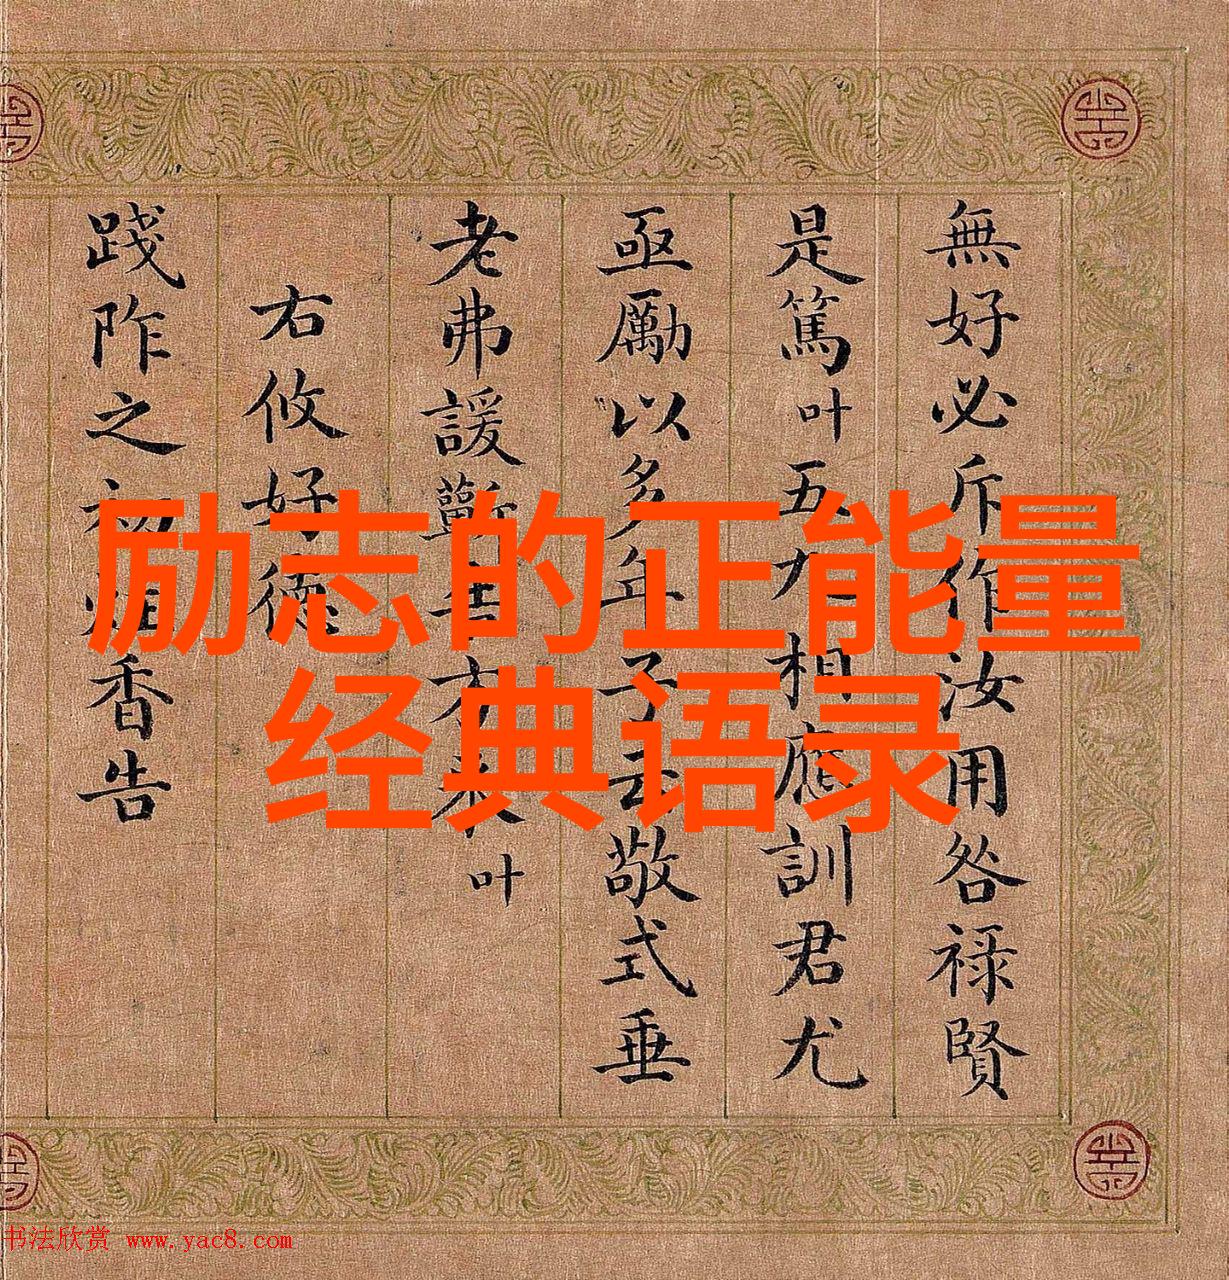 無好必斥作汝用咎禄賢
是篤叶五九相應訓君尤
亟勵以多年予去敬式垂
老弗諼斵
叶
右攸好德
踐阼之初焫香告
励志的正能量
经典语录
书法欣赏 www.yac8.com